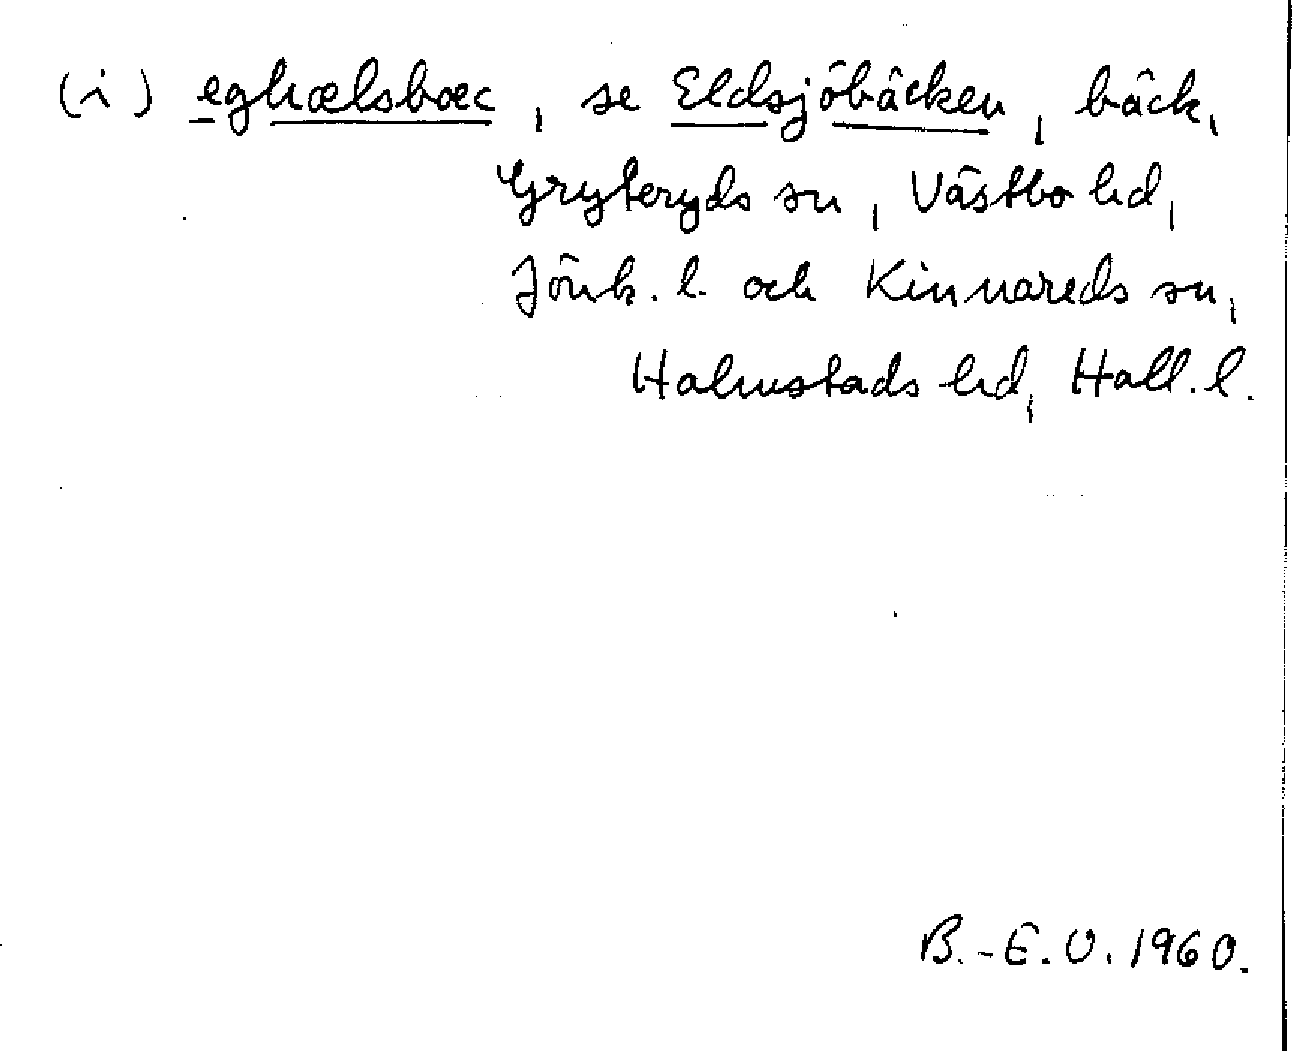 (i) eghælsbæc, se Eldsjöbäcken, bäck,
Gryteryds sn, Västbo hd,
Jönk. l. och Kinnareds sn,
Halmstads hd, Hall. l.
B.-E. O. 1960.